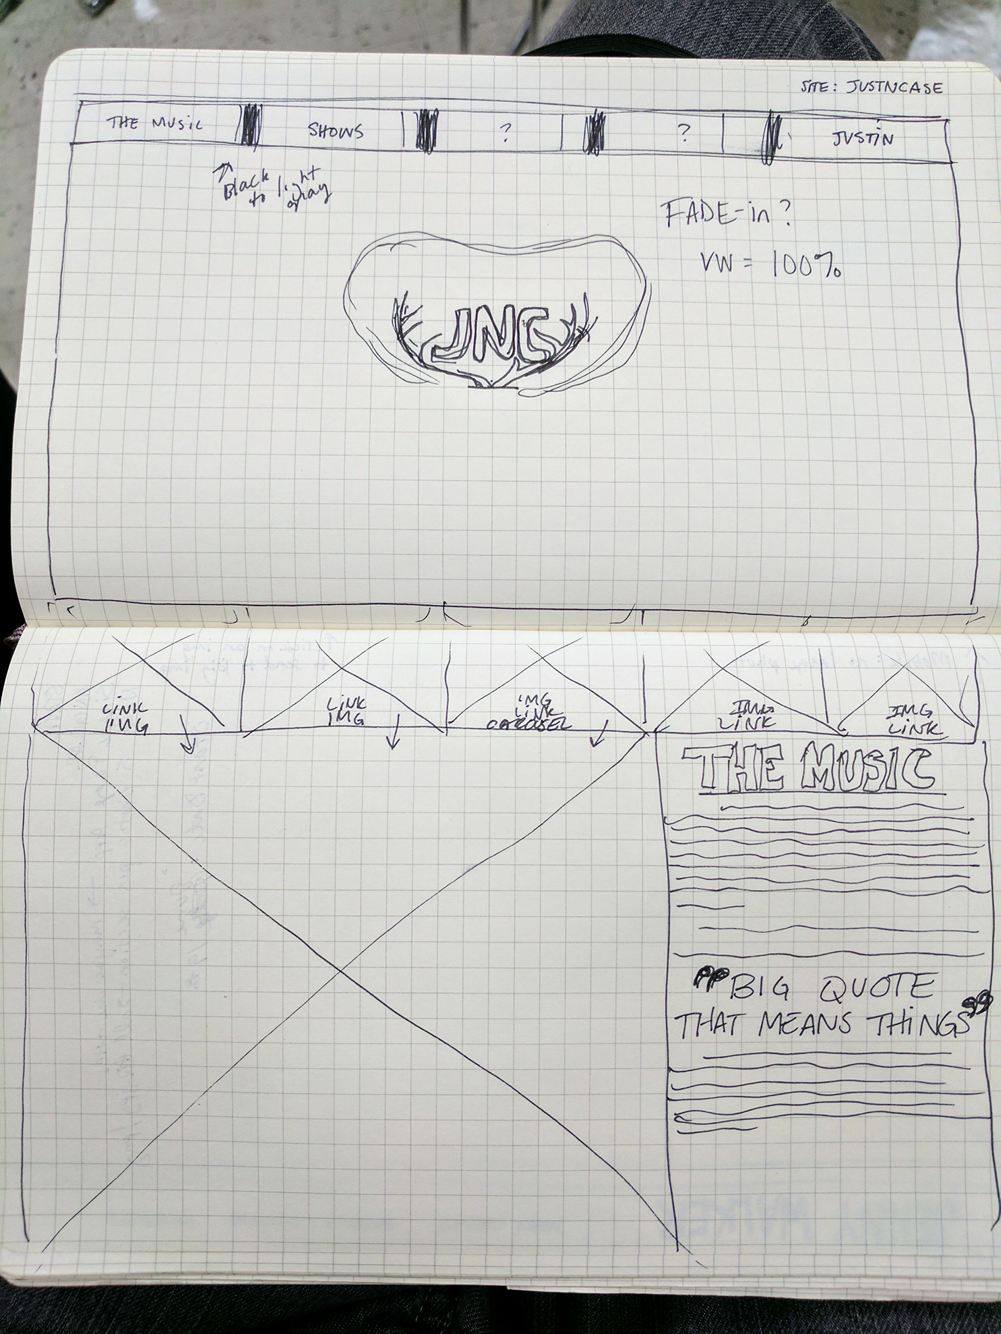 SITE: JUSTNCASE
THE MUSIC SHOWS ? ? JUSTIN
Black
to light
gray
FADE-in?
VW = 100%
JNC
LINK
IMG
LINK
IMG
IMG
LINK
CAROUSEL
IMG
LINK
IMG
LINK
THE MUSIC
"BIG QUOTE
THAT MEANS THINGS"